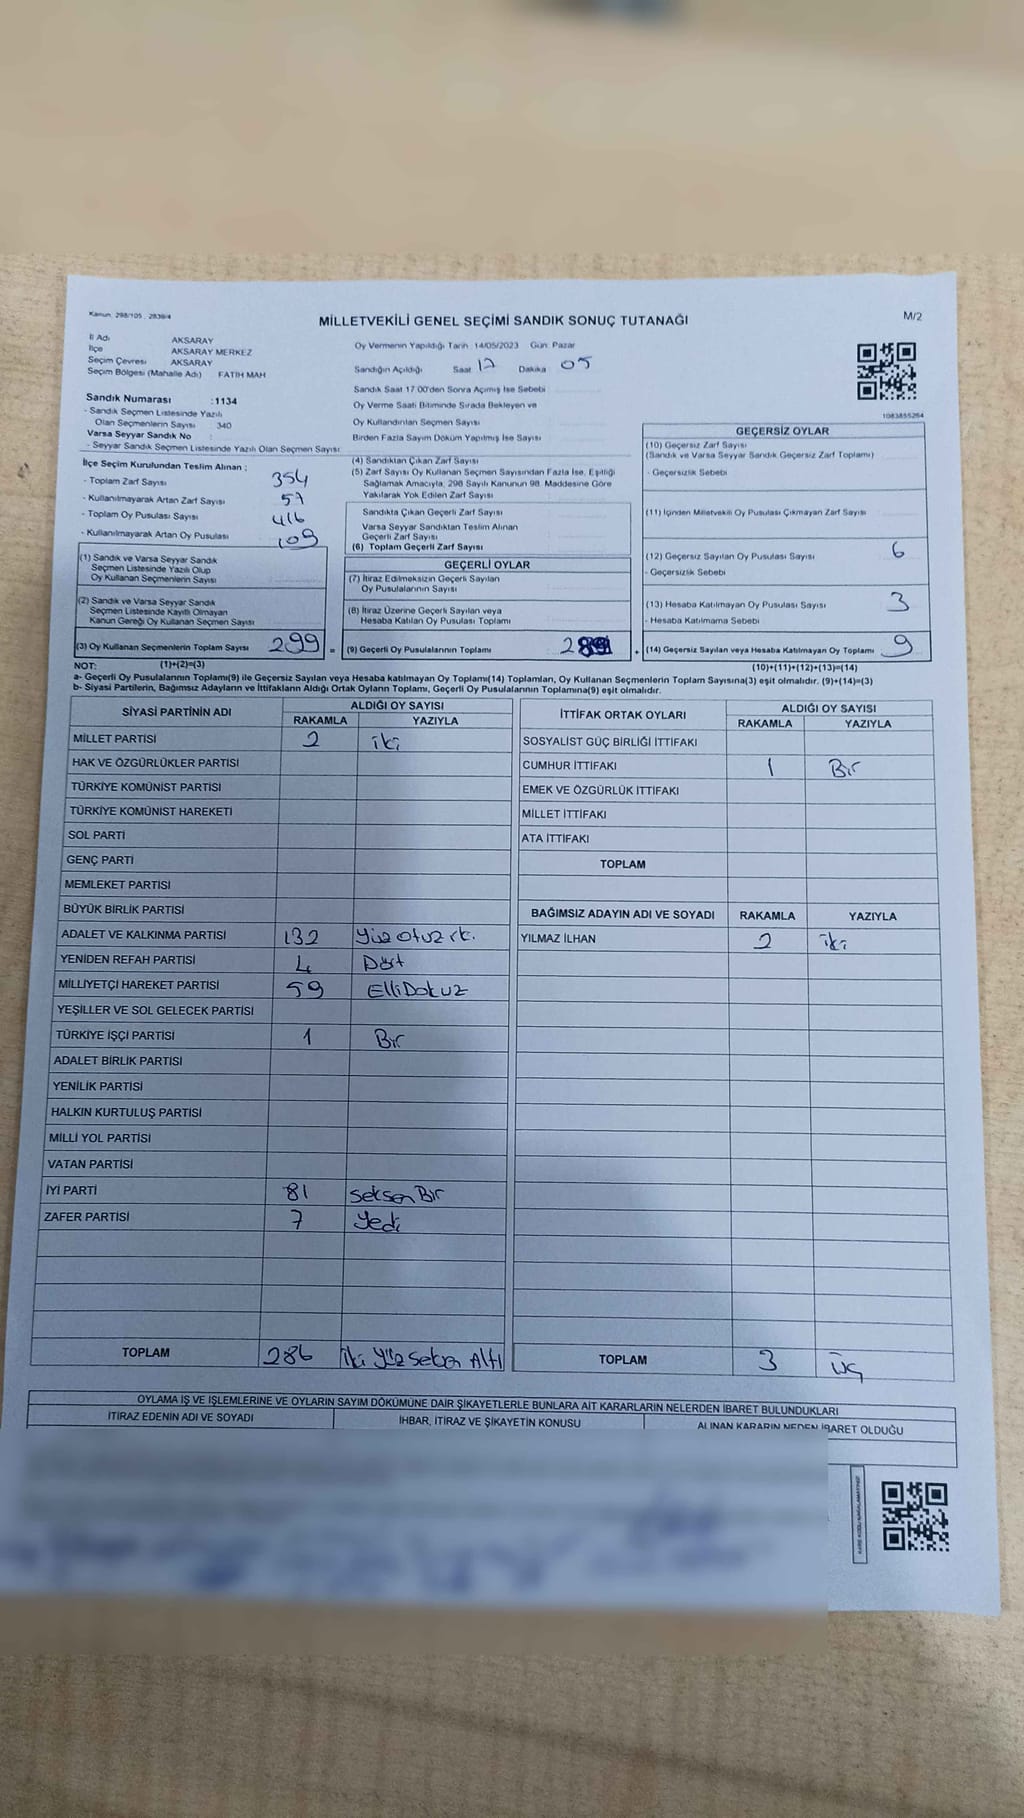 Kanun: 298/105 , 2839/4
MİLLETVEKİLİ GENEL SEÇİMİ SANDIK SONUÇ TUTANAĞI
M/2
İl Adı AKSARAY
İlçe AKSARAY MERKEZ
Seçim Çevresi AKSARAY
Seçim Bölgesi (Mahalle Adı) FATİH MAH
Sandık Numarası :1134
- Sandık Seçmen Listesinde Yazılı
Olan Seçmenlerin Sayısı 340
Varsa Seyyar Sandık No :
- Seyyar Sandık Seçmen Listesinde Yazılı Olan Seçmen Sayısı
Oy Vermenin Yapıldığı Tarih :14/05/2023 Gün: Pazar
Sandığın Açıldığı Saat 17 Dakika 05
Sandık Saat 17.00'den Sonra Açımış İse Sebebi
Oy Verme Saati Bitiminde Sırada Bekleyen ve
Oy Kullandırılan Seçmen Sayısı
Birden Fazla Sayım Döküm Yapılmış İse Sayısı
1083855264
İlçe Seçim Kurulundan Teslim Alınan ;
- Toplam Zarf Sayısı 354
- Kullanılmayarak Artan Zarf Sayısı 57
- Toplam Oy Pusulası Sayısı 416
- Kullanılmayarak Artan Oy Pusulası 109
(1) Sandık ve Varsa Seyyar Sandık
Seçmen Listesinde Yazılı Olup
Oy Kullanan Seçmenlerin Sayısı
(2) Sandık ve Varsa Seyyar Sandık
Seçmen Listesinde Kayıtlı Olmayan
Kanun Gereği Oy Kullanan Seçmen Sayısı
(3) Oy Kullanan Seçmenlerin Toplam Sayısı 299 =
(4) Sandıktan Çıkan Zarf Sayısı
(5) Zarf Sayısı Oy Kullanan Seçmen Sayısından Fazla İse, Eşitliği
Sağlamak Amacıyla, 298 Sayılı Kanunun 98. Maddesine Göre
Yakılarak Yok Edilen Zarf Sayısı
Sandıkta Çıkan Geçerli Zarf Sayısı
Varsa Seyyar Sandıktan Teslim Alınan
Geçerli Zarf Sayısı
(6) Toplam Geçerli Zarf Sayısı
GEÇERLİ OYLAR
(7) İtiraz Edilmeksizin Geçerli Sayılan
Oy Pusulalarının Sayısı
(8) İtiraz Üzerine Geçerli Sayılan veya
Hesaba Katılan Oy Pusulası Toplamı
(9) Geçerli Oy Pusulalarının Toplamı +
GEÇERSİZ OYLAR
(10) Geçersiz Zarf Sayısı
(Sandık ve Varsa Seyyar Sandık Geçersiz Zarf Toplamı)
- Geçersizlik Sebebi
(11) İçinden Milletvekili Oy Pusulası Çıkmayan Zarf Sayısı
(12) Geçersiz Sayılan Oy Pusulası Sayısı 6
- Geçersizlik Sebebi
(13) Hesaba Katılmayan Oy Pusulası Sayısı 3
- Hesaba Katılmama Sebebi
(14) Geçersiz Sayılan veya Hesaba Katılmayan Oy Toplamı 9
NOT: (1)+(2)=(3) (10)+(11)+(12)+(13)=(14)
a- Geçerli Oy Pusulalarının Toplamı(9) ile Geçersiz Sayılan veya Hesaba katılmayan Oy Toplamı(14) Toplamları, Oy Kullanan Seçmenlerin Toplam Sayısına(3) eşit olmalıdır. (9)+(14)=(3)
b- Siyasi Partilerin, Bağımsız Adayların ve İttifakların Aldığı Ortak Oyların Toplamı, Geçerli Oy Pusulalarının Toplamına(9) eşit olmalıdır.
SİYASİ PARTİNİN ADI ALDIĞI OY SAYISI
RAKAMLA YAZIYLA
MİLLET PARTİSİ 2 iki
HAK VE ÖZGÜRLÜKLER PARTİSİ
TÜRKİYE KOMÜNİST PARTİSİ
TÜRKİYE KOMÜNİST HAREKETİ
SOL PARTİ
GENÇ PARTİ
MEMLEKET PARTİSİ
BÜYÜK BİRLİK PARTİSİ
ADALET VE KALKINMA PARTİSİ 132 Yüz otuz
YENİDEN REFAH PARTİSİ 4 Dört
MİLLİYETÇİ HAREKET PARTİSİ 59 Elli Dokuz
YEŞİLLER VE SOL GELECEK PARTİSİ
TÜRKİYE İŞÇİ PARTİSİ 1 Bir
ADALET BİRLİK PARTİSİ
YENİLİK PARTİSİ
HALKIN KURTULUŞ PARTİSİ
MİLLİ YOL PARTİSİ
VATAN PARTİSİ
İYİ PARTİ 81 Seksen Bir
ZAFER PARTİSİ 7 Yedi
TOPLAM 286 İki Yüz Seksen Altı
İTTİFAK ORTAK OYLARI ALDIĞI OY SAYISI
RAKAMLA YAZIYLA
SOSYALİST GÜÇ BİRLİĞİ İTTİFAKI
CUMHUR İTTİFAKI 1 Bir
EMEK VE ÖZGÜRLÜK İTTİFAKI
MİLLET İTTİFAKI
ATA İTTİFAKI
TOPLAM
BAĞIMSIZ ADAYIN ADI VE SOYADI RAKAMLA YAZIYLA
YILMAZ İLHAN 2 iki
TOPLAM 3 Üç
OYLAMA İŞ VE İŞLEMLERİNE VE OYLARIN SAYIM DÖKÜMÜNE DAİR ŞİKAYETLERLE BUNLARA AİT KARARLARIN NELERDEN İBARET BULUNDUKLARI
İTİRAZ EDENİN ADI VE SOYADI İHBAR, İTİRAZ VE ŞİKAYETİN KONUSU ALINAN KARARIN NEDEN İBARET OLDUĞU